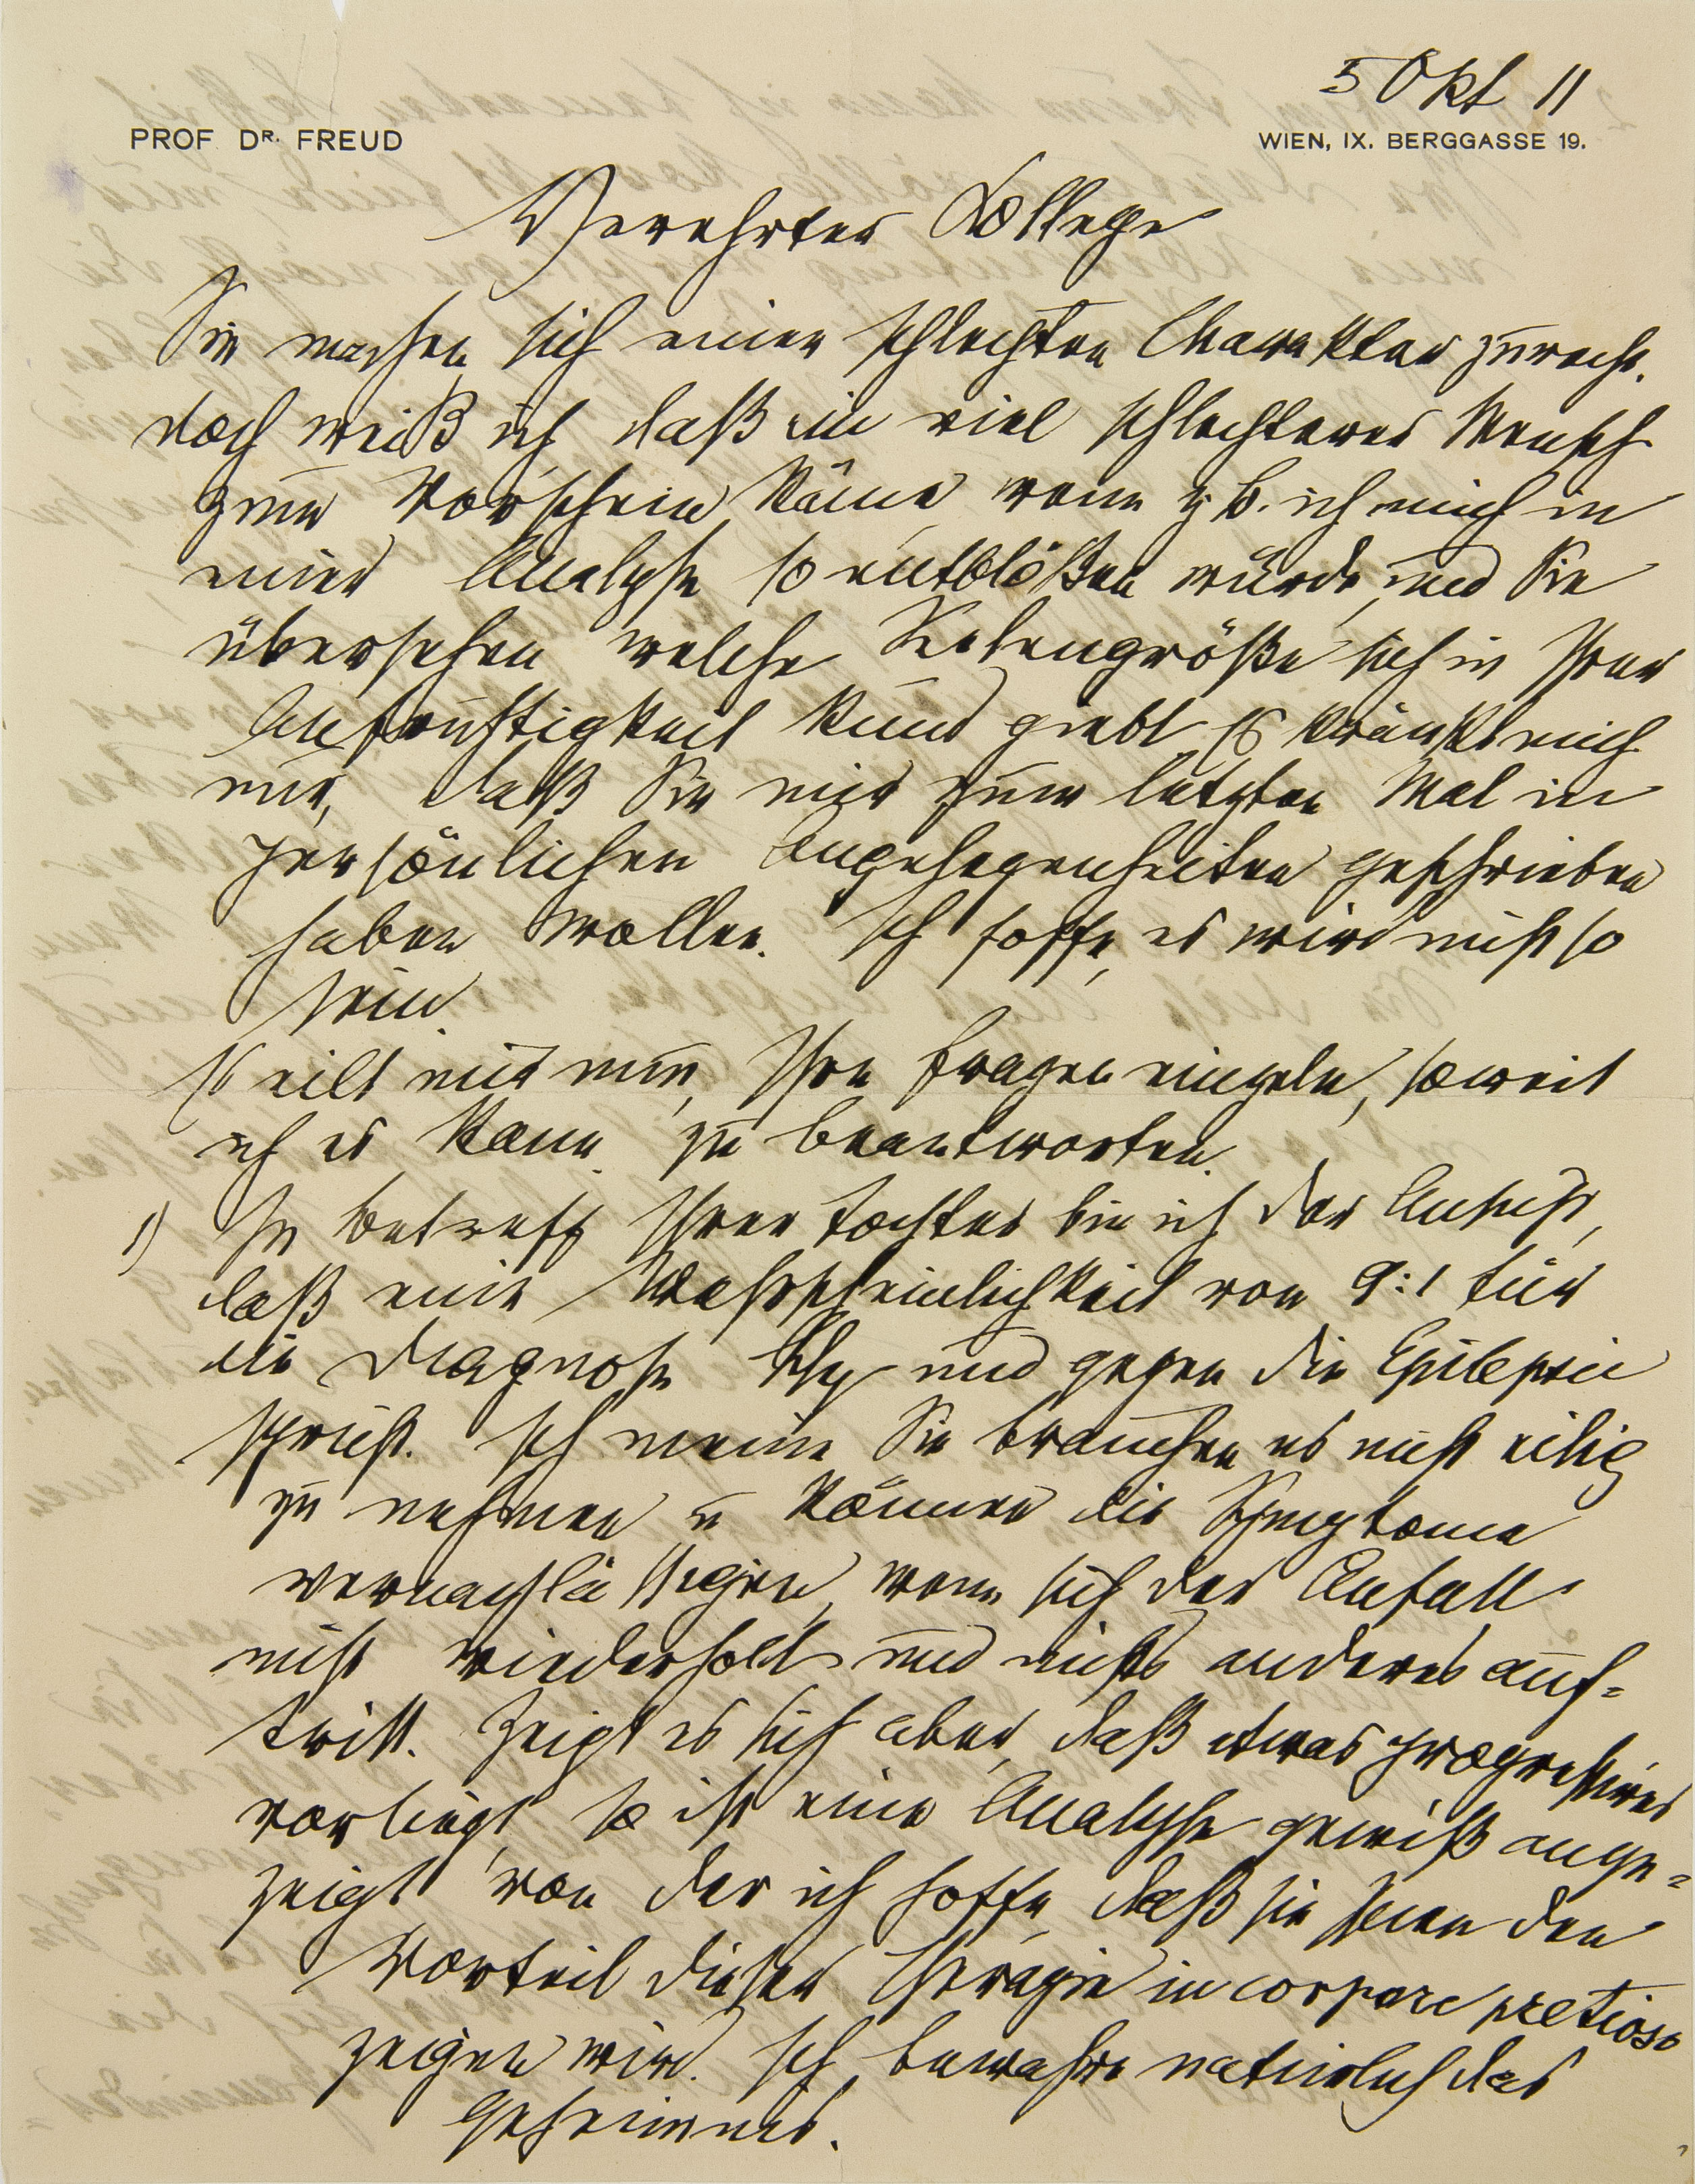 5 Okt 11
PROF. DR. FREUD
WIEN, IX. BERGGASSE 19.
Verehrter College
Sie machen sich einen schlechten Charakter zurecht.
doch weiß ich daß ein viel schlechterer Mensch
zum Vorschein käme, wenn z b. ich mich in
einer Analyse so entblößen würde, und Sie
übersehen welche Seelengröße sich in Ihrer
Aufrichtigkeit kund giebt. Es kränkt mich
nur, daß Sie mir zum letzten Mal in
persönlichen Angelegenheiten geschrieben
haben wollen. Ich hoffe, es wird nicht so
sein.
Es eilt mir nun, Ihre Fragen einzeln, soweit
ich es kann, zu beantworten.
1) In betreff Ihrer Tochter bin ich der Ansicht,
daß eine Wahrscheinlichkeit von 9:1 für
die Diagnose Hy und gegen die Epilepsie
spricht. Ich meine Sie brauchen es nicht eilig
zu nehmen u können die Symptome
vernachlässigen, wenn sich der Anfall
nicht wiederholt und nichts anderes auf=
tritt. Zeigt es sich aber, daß etwas progressives
vorliegt, so ist eine Analyse gewiß ange=
zeigt, von der ich hoffe, daß sie Ihnen den
Vorteil dieser Therapie in corpore pretioso
zeigen wird. Ich bewahre natürlich das
Geheimnis.